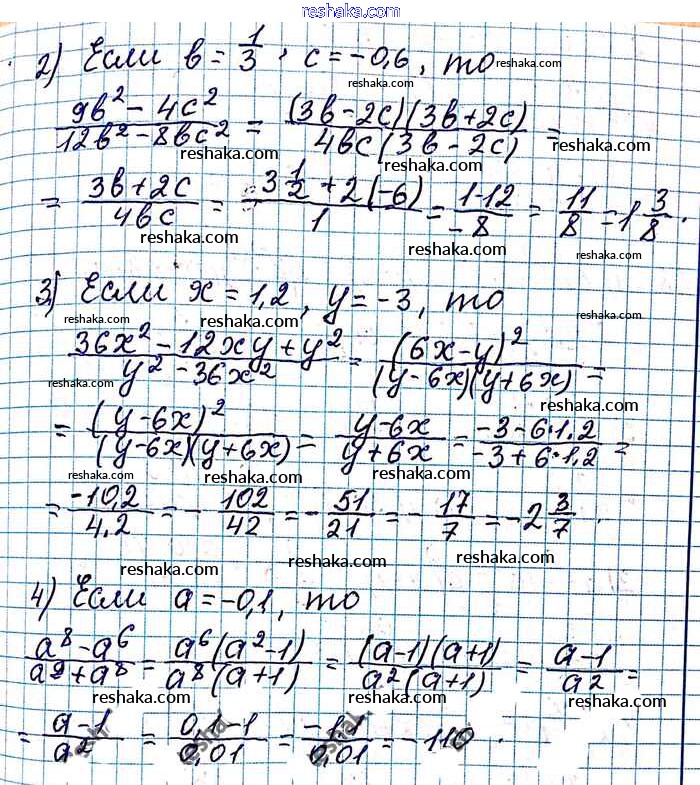 reshaka.com
2) Если b = 1/3 ; c = -0,6, то reshaka.com
(9b² - 4c²)/(12b² - 8bc²) = ((3b - 2c)(3b + 2c))/(4bc(3b - 2c)) =
reshaka.com reshaka.com
= (3b + 2c)/(4bc) = (3 1/2 + 2(-6))/1 = (1-12)/(-8) = 11/8 = 1 3/8.
reshaka.com reshaka.com reshaka.com
3) Если x = 1,2, y = -3, то
reshaka.com reshaka.com reshaka.com
(36x² - 12xy + y²)/(y² - 36x²) = (6x - y)²/((y - 6x)(y + 6x)) =
reshaka.com reshaka.com reshaka.com
= (y - 6x)²/((y - 6x)(y + 6x)) = (y - 6x)/(y + 6x) = (-3 - 6·1,2)/(-3 + 6·1,2) =
reshaka.com reshaka.com reshaka.com
= (-10,2)/4,2 = - 102/42 = - 51/21 = - 17/7 = -2 3/7.
reshaka.com reshaka.com reshaka.com
4) Если a = -0,1, то
reshaka.com
(a⁸ - a⁶)/(a⁹ + a⁸) = (a⁶(a² - 1))/(a⁸(a + 1)) = ((a-1)(a+1))/(a²(a+1)) = (a-1)/a² =
reshaka.com reshaka.com reshaka.com
= (a-1)/a² = (0,1-1)/0,01 = (-1,1)/0,01 = -110.
reshaka.com